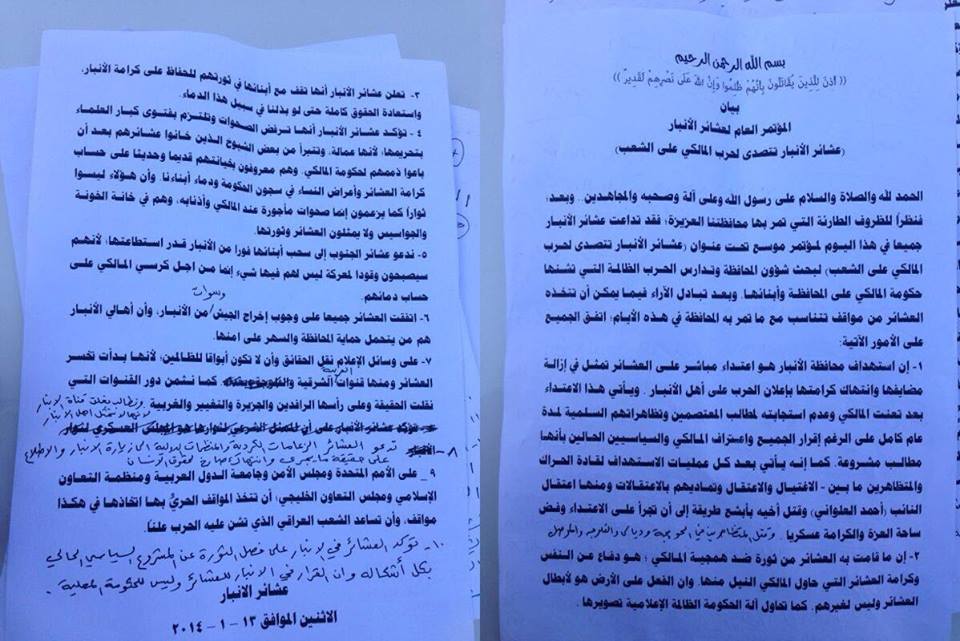 بسم الله الرحمن الرحيم
(( أُذِنَ لِلَّذِينَ يُقَاتَلُونَ بِأَنَّهُمْ ظُلِمُوا وَإِنَّ اللَّهَ عَلَى نَصْرِهِمْ لَقَدِيرٌ ))
بيان
المؤتمر العام لعشائر الأنبار
(عشائر الأنبار تتصدى لحرب المالكي على الشعب)
الحمد لله والصلاة والسلام على رسول الله وعلى آلة وصحبه والمجاهدين .. وبعد؛
فنظراً للظروف الطارئة التي تمر بها محافظتنا العزيزة؛ فقد تداعت عشائر الأنبار
جميعا في هذا اليوم لمؤتمر موسع تحت عنوان (عشائر الأنبار تتصدى لحرب
المالكي على الشعب) لبحث شؤون المحافظة وتدارس الحرب الظالمة التي تشنها
حكومة المالكي على المحافظة وأبنائها. وبعد تبادل الآراء فيما يمكن أن تتخذه
العشائر من مواقف تتناسب مع ما تمر به المحافظة في هذه الأيام؛ اتفق الجميع
على الأمور الآتية:
١- إن استهداف محافظة الأنبار هو اعتداء مباشر على العشائر تمثل في إزالة
مضايفها وانتهاك كرامتها بإعلان الحرب على أهل الأنبار. ويأتي هذا الاعتداء
بعد تعنت المالكي وعدم استجابته لمطالب المعتصمين وتظاهراتهم السلمية لمدة
عام كامل على الرغم إقرار الجميع واعتراف المالكي والسياسيين الحالين بأنها
مطالب مشروعة. كما إنه يأتي بعد كل عمليات الاستهداف لقادة الحراك
والمتظاهرين ما بين - الاغتيال والاعتقال وتماديهم بالاعتقالات ومنها اعتقال
النائب (أحمد العلواني) وقتل أخيه بأبشع طريقة إلى أن تجرأ على الاعتداء وفض
ساحة العزة والكرامة عسكريا. وقتل المتظاهرين في الحويجة وديالى والفلوجة والموصل
٢- إن ما قامت به العشائر من ثورة ضد همجية المالكي؛ هو دفاع عن النفس
وكرامة العشائر التي حاول المالكي النيل منها. وإن الفعل على الأرض هو لأبطال
العشائر وليس لغيرهم. كما تحاول آلة الحكومة الظالمة الإعلامية تصويرها.
٣- تعلن عشائر الأنبار أنها تقف مع أبنائها في ثورتهم للحفاظ على كرامة الأنبار،
واستعادة الحقوق كاملة حتى لو بذلنا في سبيل هذا الدماء.
٤- تؤكد عشائر الأنبار أنها ترفض الصحوات وتلتزم بفتوى كبار العلماء
بتحريمها؛ لأنها عمالة. وتتبرأ من بعض الشيوخ الذين خانوا عشائرهم بعد أن
باعوا ذممهم لحكومة المالكي. وهم معروفون بخيانتهم قديما وحديثا على حساب
كرامة العشائر وأعراض النساء في سجون الحكومة ودماء أبناءنا. وأن هؤلاء ليسوا
ثواراً كما يزعمون إنما صحوات مأجورة عند المالكي وأذنابه، وهم في خانة الخونة
والجواسيس ولا يمثلون العشائر وثورتها.
٥- ندعو عشائر الجنوب إلى سحب أبنائها فورا من الأنبار قدر استطاعتها؛ لأنهم
سيصبحون وقودا لمعركة ليس لهم فيها شيء إنما من اجل كرسي المالكي على
حساب دمائهم.
٦- اتفقت العشائر جميعا على وجوب إخراج الجيش/ وسوات من الأنبار، وأن أهالي الأنبار
هم من يتحمل حماية المحافظة والسهر على امنها.
٧- على وسائل الإعلام نقل الحقائق وأن لا تكون أبواقا للظالمين؛ لأنها بدأت تخسر
العشائر ومنها قنوات الشرقية العربية كما نثمن دور القنوات التي
نقلت الحقيقة وعلى رأسها الرافدين والجزيرة والتغيير والغربية
ونطالب بغلق قناة الأنبار لأنها لا تمثل أهل الأنبار
٨- تدعو العشائر الزعامات الكردية والمنظمات الدولية إلى زيارة الأنبار والاطلاع
على حقيقة ما يجري وانتهاك صارخ لحقوق الإنسان
٩- على الأمم المتحدة ومجلس الأمن وجامعة الدول العربية ومنظمة التعاون
الإسلامي ومجلس التعاون الخليجي؛ أن تتخذ المواقف الحريُّ بها اتخاذها في هكذا
مواقف. وأن تساعد الشعب العراقي الذي تشن عليه الحرب علنا.
١٠- تؤكد العشائر في الأنبار على فصل الثورة عن المشروع السياسي الحالي
بكل أشكاله وان القرار في الأنبار للعشائر وليس للحكومة المحلية.
عشائر الانبار
الاثنين الموافق ١٣ - ١ - ٢٠١٤